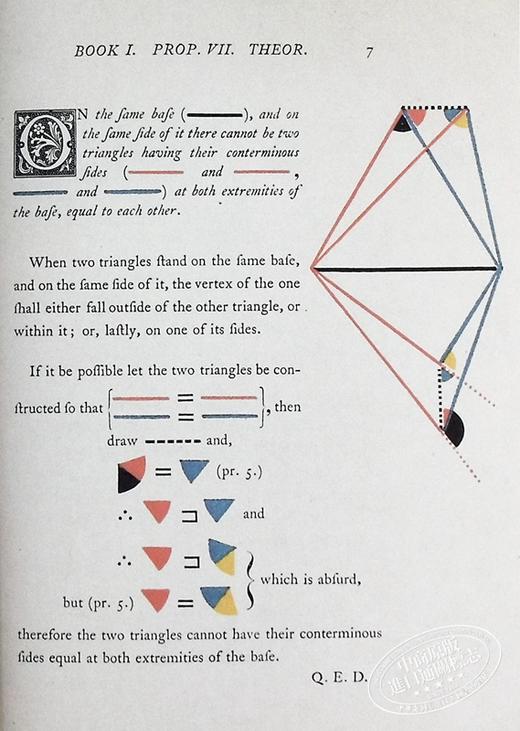 BOOK I. PROP. VII. THEOR. 7
ON the ſame baſe ( ), and on
the ſame ſide of it there cannot be two
triangles having their conterminous
ſides ( and ,
and ) at both extremities of
the baſe, equal to each other.
When two triangles ſtand on the ſame baſe,
and on the ſame ſide of it, the vertex of the one
ſhall either fall outſide of the other triangle, or
within it; or, laſtly, on one of its ſides.
If it be poſſible let the two triangles be con-
ſtructed ſo that { = = }, then
draw and,
= (pr. 5.)
∴ ⊐ and
∴ ⊐
which is abſurd,
but (pr. 5.) =
therefore the two triangles cannot have their conterminous
ſides equal at both extremities of the baſe.
Q. E. D.
中商原版
進口圖圖書